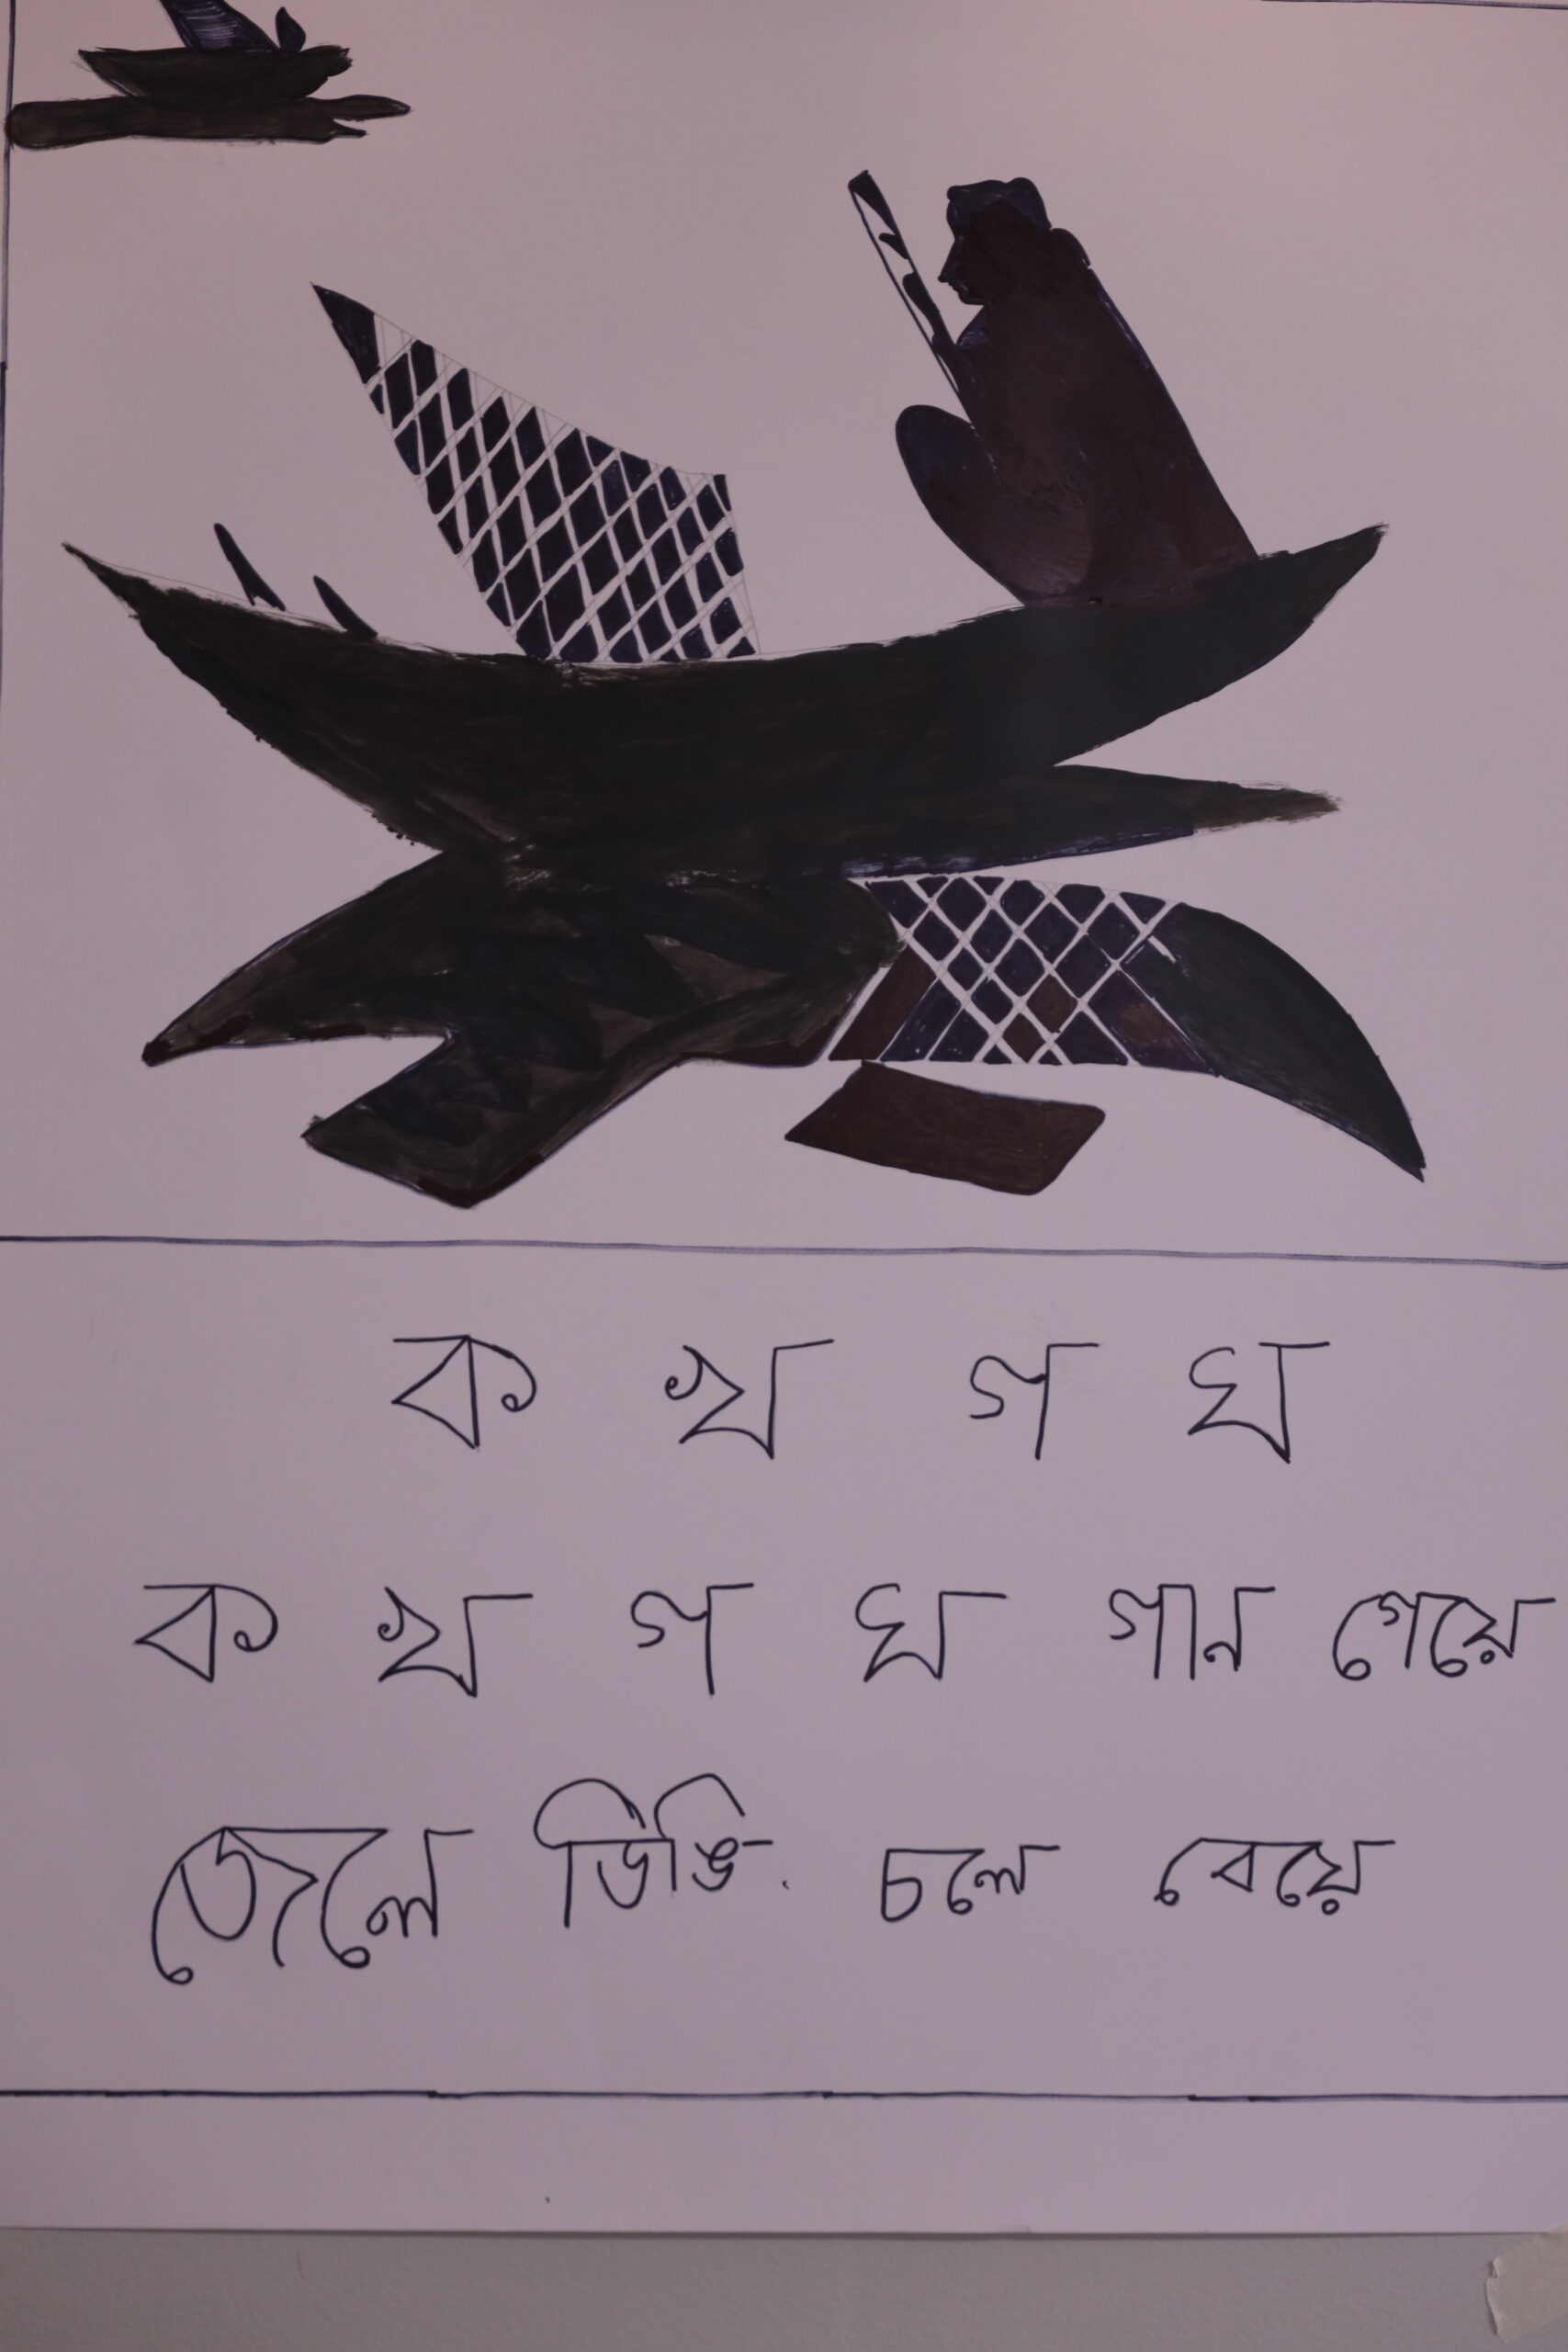 ক খ গ ঘ
ক খ গ ঘ গান গেয়ে
জেলে ডিঙি চলে বেয়ে